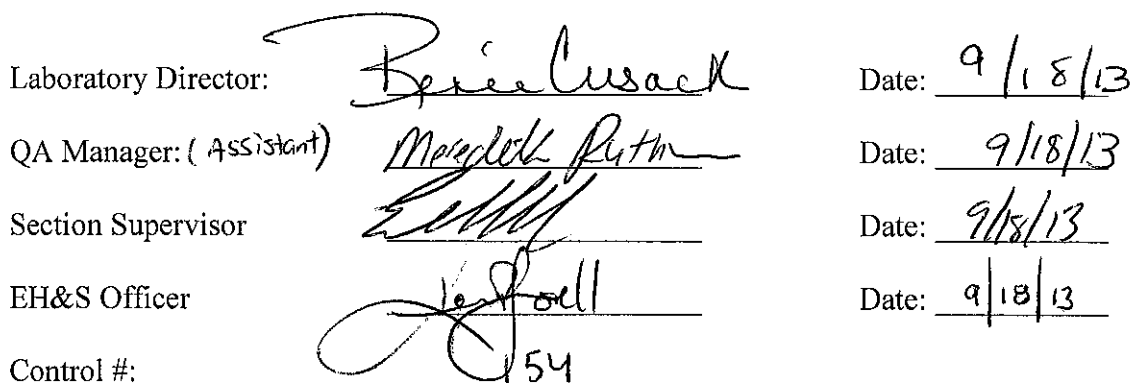 Laboratory Director: Cusack Date: 9/18/13
QA Manager: (Assistant) Meredith Date: 9/18/13
Section Supervisor Date: 9/18/13
EH&S Officer Date: 9/18/13
Control #: 154